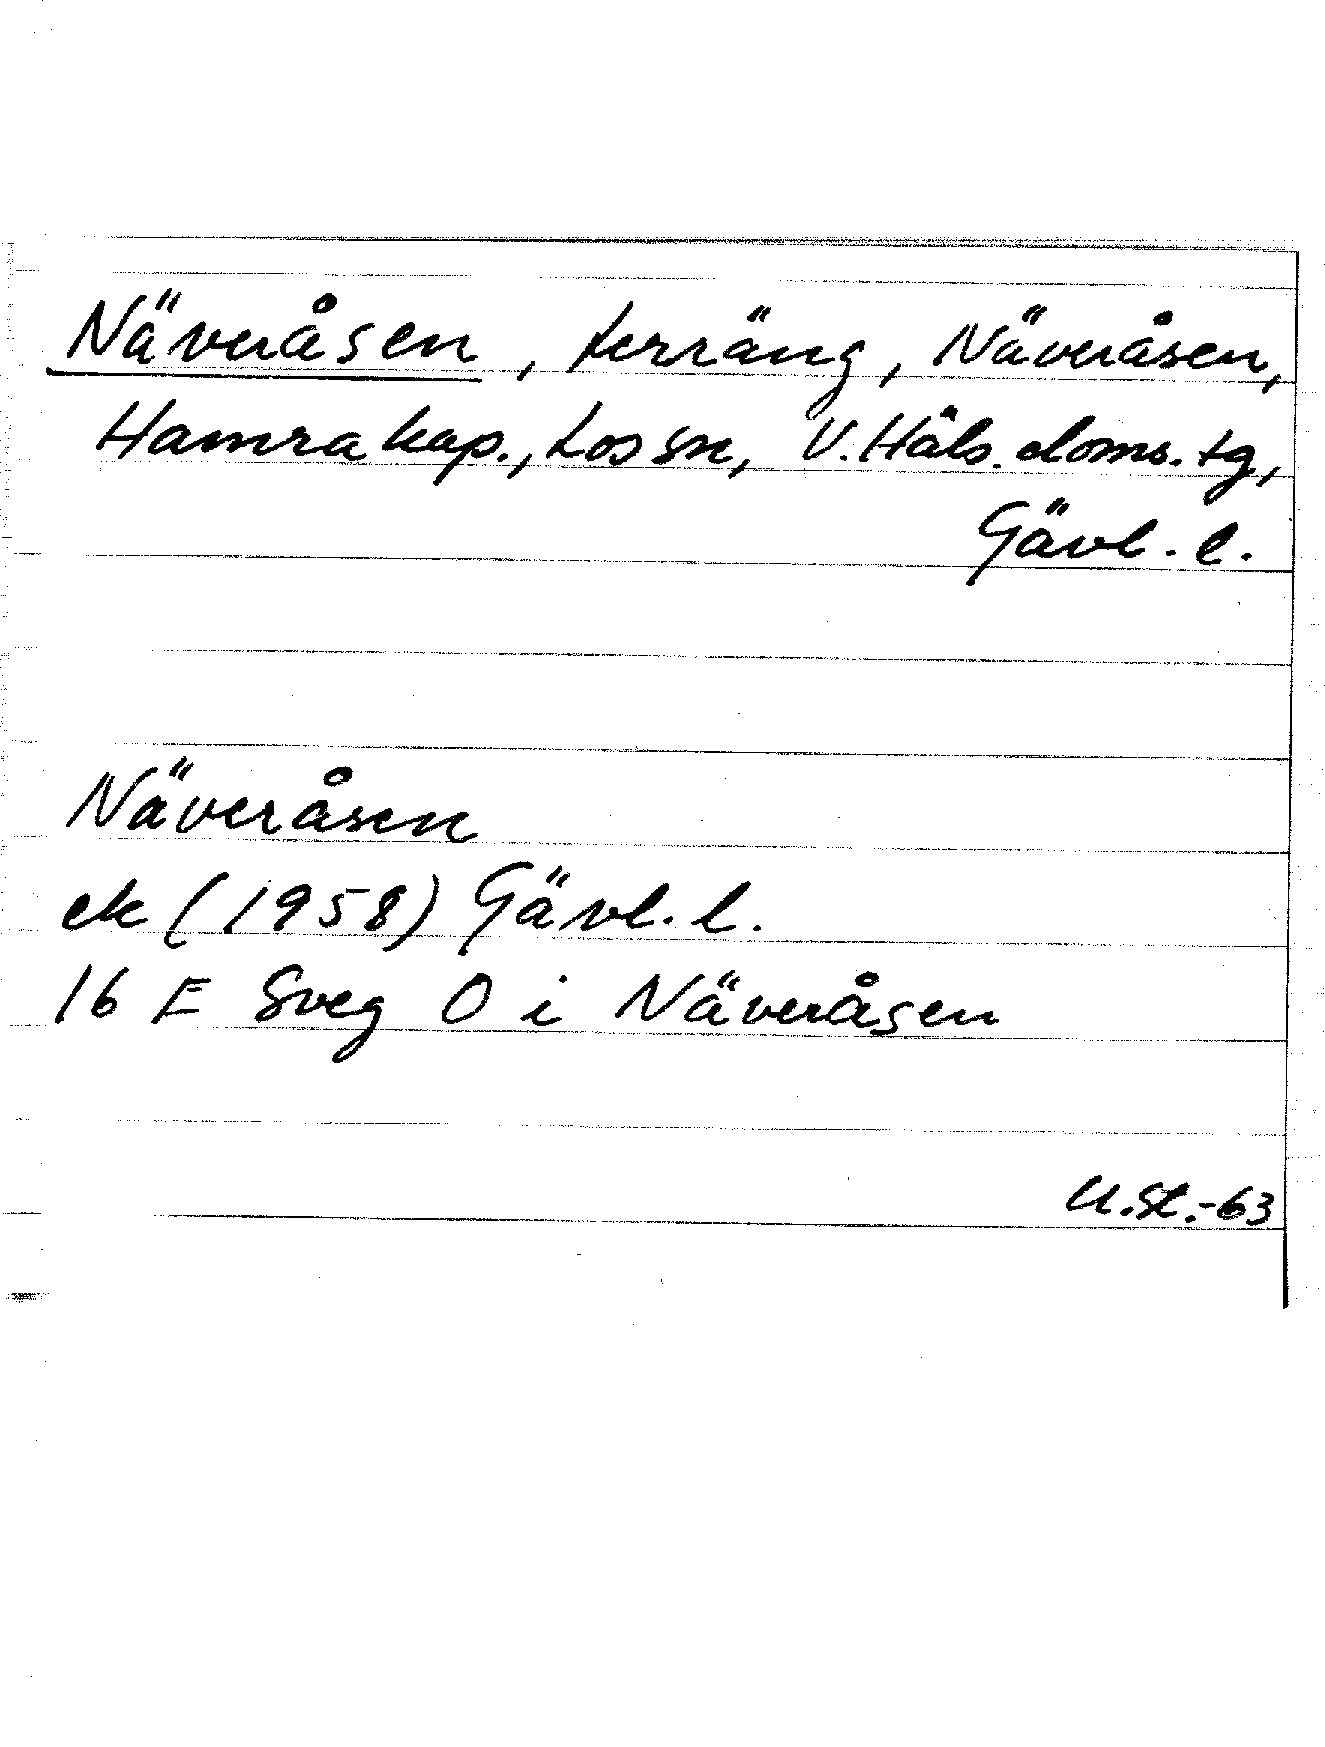 Näveråsen, terräng, Näveråsen,
Hamra kap., Los sn, V. Häls. doms. tg,
Gävl. l.
Näveråsen
ek (1958) Gävl. l.
16 E Sveg O i Näveråsen
U.St.-63